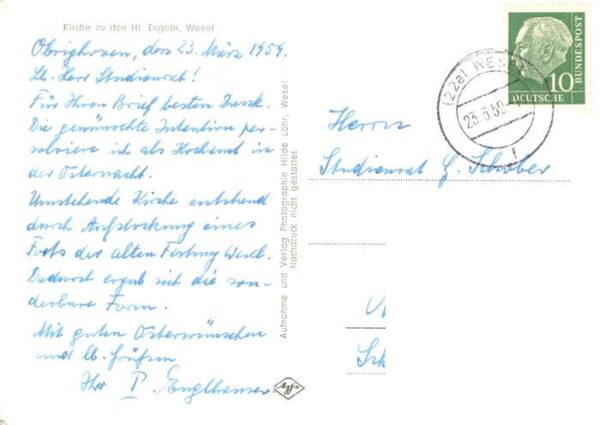 Kirche zu den Hl. Engeln, Wesel
Obrighoven, den 23. März 1959.
Lb. Herr Studienrat!
Für Ihren Brief besten Dank.
Die gewünschte Intention per-
solviere ich als Hochamt in
der Osternacht.
Umstehende Kirche entstand
durch Aufstockung eines
Forts der alten Festung Wesel.
Dadurch ergab sich die son-
derbare Form.
Mit guten Osterwünschen
und lb. Grüßen
Ihr P.
Aufnahme und Verlag Photographin Hilde Löhr, Wesel
Nachdruck nicht gestattet
Agfa
(22a) WESEL
23.3.59
f
10
DEUTSCHE
BUNDESPOST
Herrn
Studienrat G. Schober